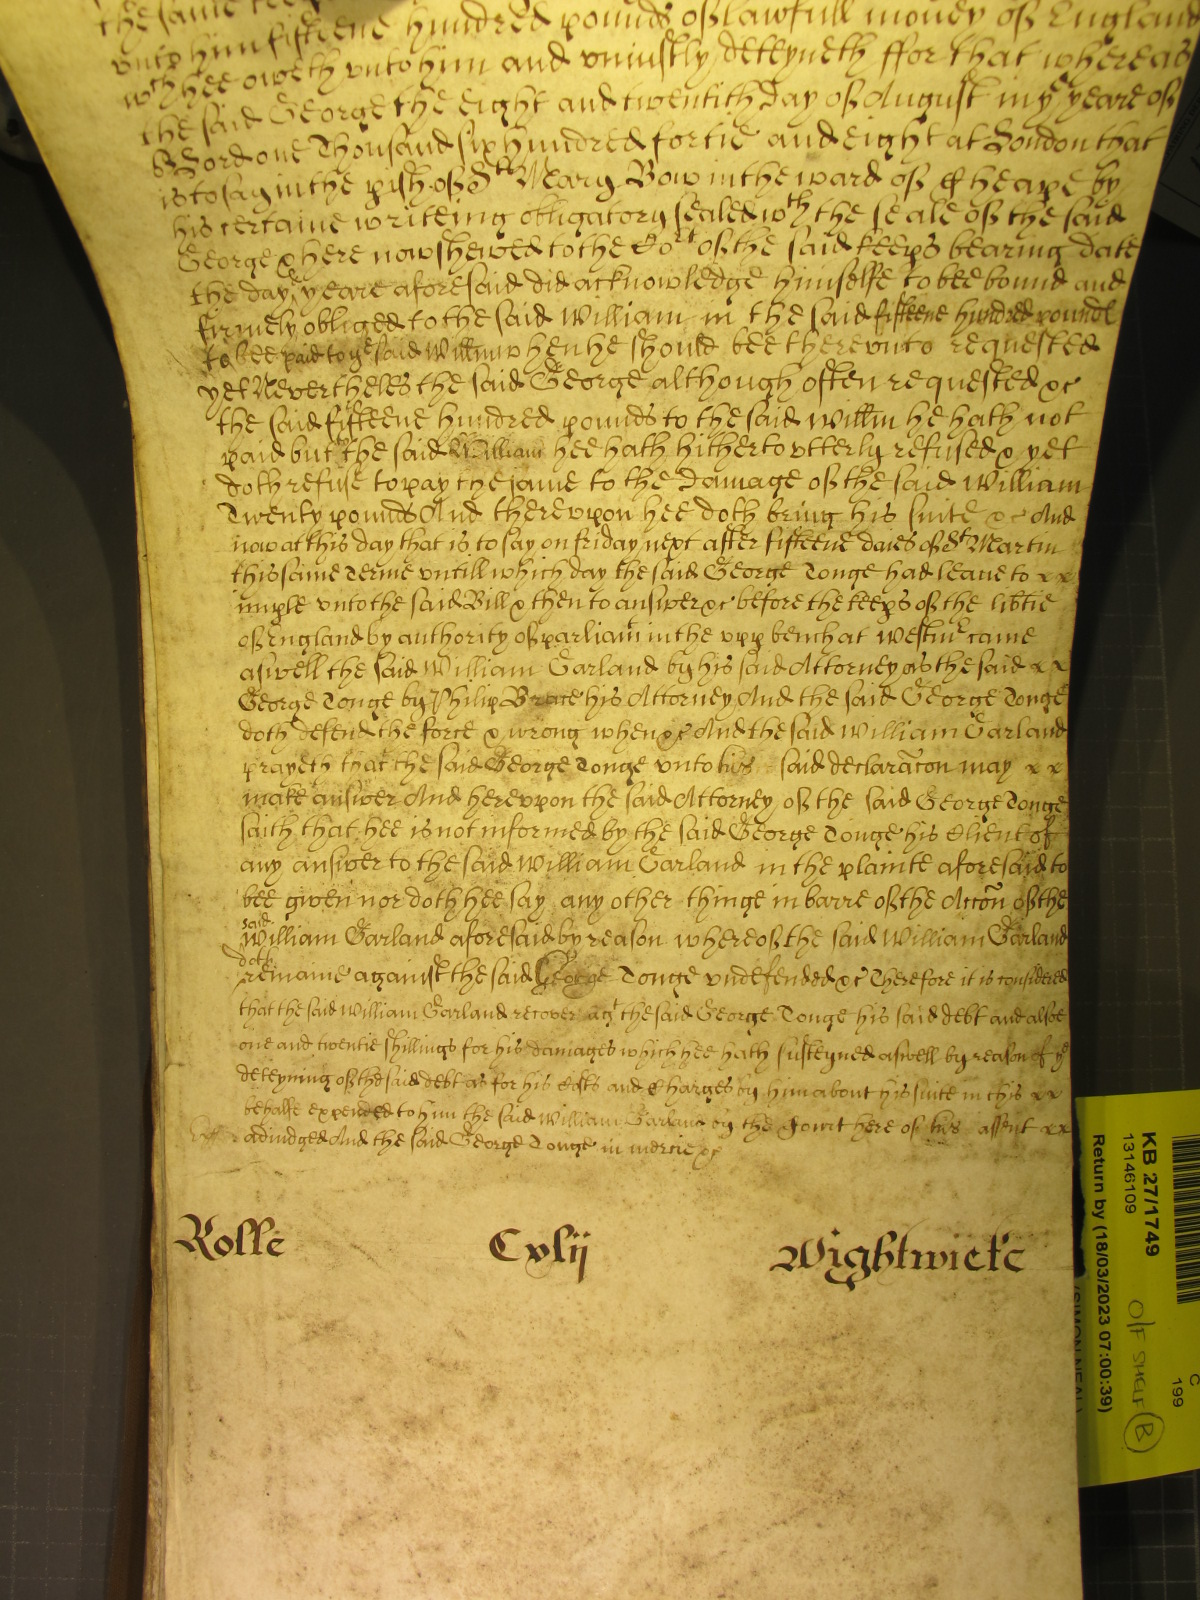 the same
unto him fifteene hundred pounds of lawfull money of England
wch hee oweth unto him and uniustly deteyneth ffor that whereas
the said George the eight and twentith day of August in ye yeare of
or Lord one Thousand six hundred fortie and eight at London that
is to say in the pish of St Mary Bow in the ward of Cheape by
his certaine writeing obligatory sealed wth the seale of the said
George & here now shewed to the Cort of the said keeps bearing date
the day & yeare aforesaid did acknowledge himselfe to bee bound and
firmely obliged to the said William in the said fifteene hundred pounds
to bee paid to ye said Willm when he should bee thereunto requested
yet Nevertheles the said George although often requested &c
the said fifteene hundred pounds to the said Willm he hath not
paid but the said William hee hath hitherto utterly refused & yet
doth refuse to pay the same to the Damage of the said William
Twenty pounds And thereupon hee doth bring his suite &c And
now at this day that is to say on friday next after fifteene daies of St Martin
this same Terme untill which day the said George Tonge had leave to x x
imple unto the said Bill & then to answer &c before the keeps of the libtie
of England by authority of parliamt in the upp bench at Westmr came
aswell the said William Garland by his said Attorney as the said x x
George Tonge by Philip Brace his Attorney And the said George Tonge
doth defend the force & wrong when &c And the said William Garland
prayeth that the said George Tonge unto his said declaracon may x x
make answer And hereupon the said Attorney of the said George Tonge
saith that hee is not informed by the said George Tonge his Client of
any answer to the said William Garland in the plainte aforesaid to
bee given nor doth hee say any other thinge in barre of the Accon of the
said
William Garland aforesaid by reason whereof the said William Garland
doth
remaine against the said George Tonge undefended &c Therefore it is considered
that the said William Garland recover agt the said George Tonge his said debt and alsoe
one and twentie shillings for his damages which hee hath susteyned aswell by reason of ye
deteyning of the said debt as for his Costs and Charges by him about his suite in this x x
behalfe expended to him the said William Garland by the Court here of his assent x x
adiudged And the said George Tonge in mercie &c
Rolle Cxlij Wightwicke
KB 27/1749
13146109
Return by (18/03/2023 07:00:39)
O/F SHELF B
C
199
(SIMON NEAL)